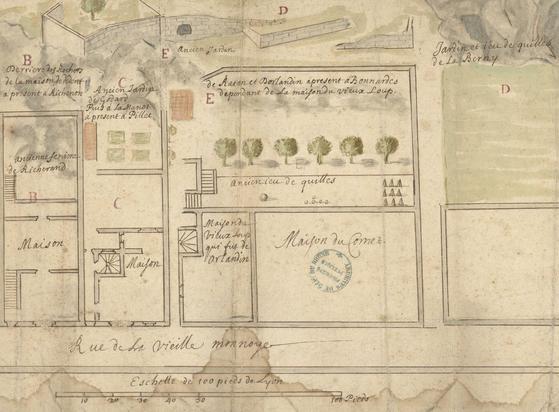 D
B
E
ancien Jardin
Jardin et ieu de quilles
de La Berny
Derriere des
de la maison de
a present a Richerand
C
Ancien Jardin
de
Puis a la
a present a Pillet
E
de Ravier et Dorlandin a present a Bonnardes
dependant de La maison du vieux Loup.
D
ancienne
de Richerand
B
C
ancien ieu de quilles
Maison
Maison
Maison du
vieux Loup
qui fut de
Orlandin
Maison du Cornez
Rue de La vieille monnoye
Eschelle de 100 pieds de Lyon
10 20 30 40 50 100 Pieds